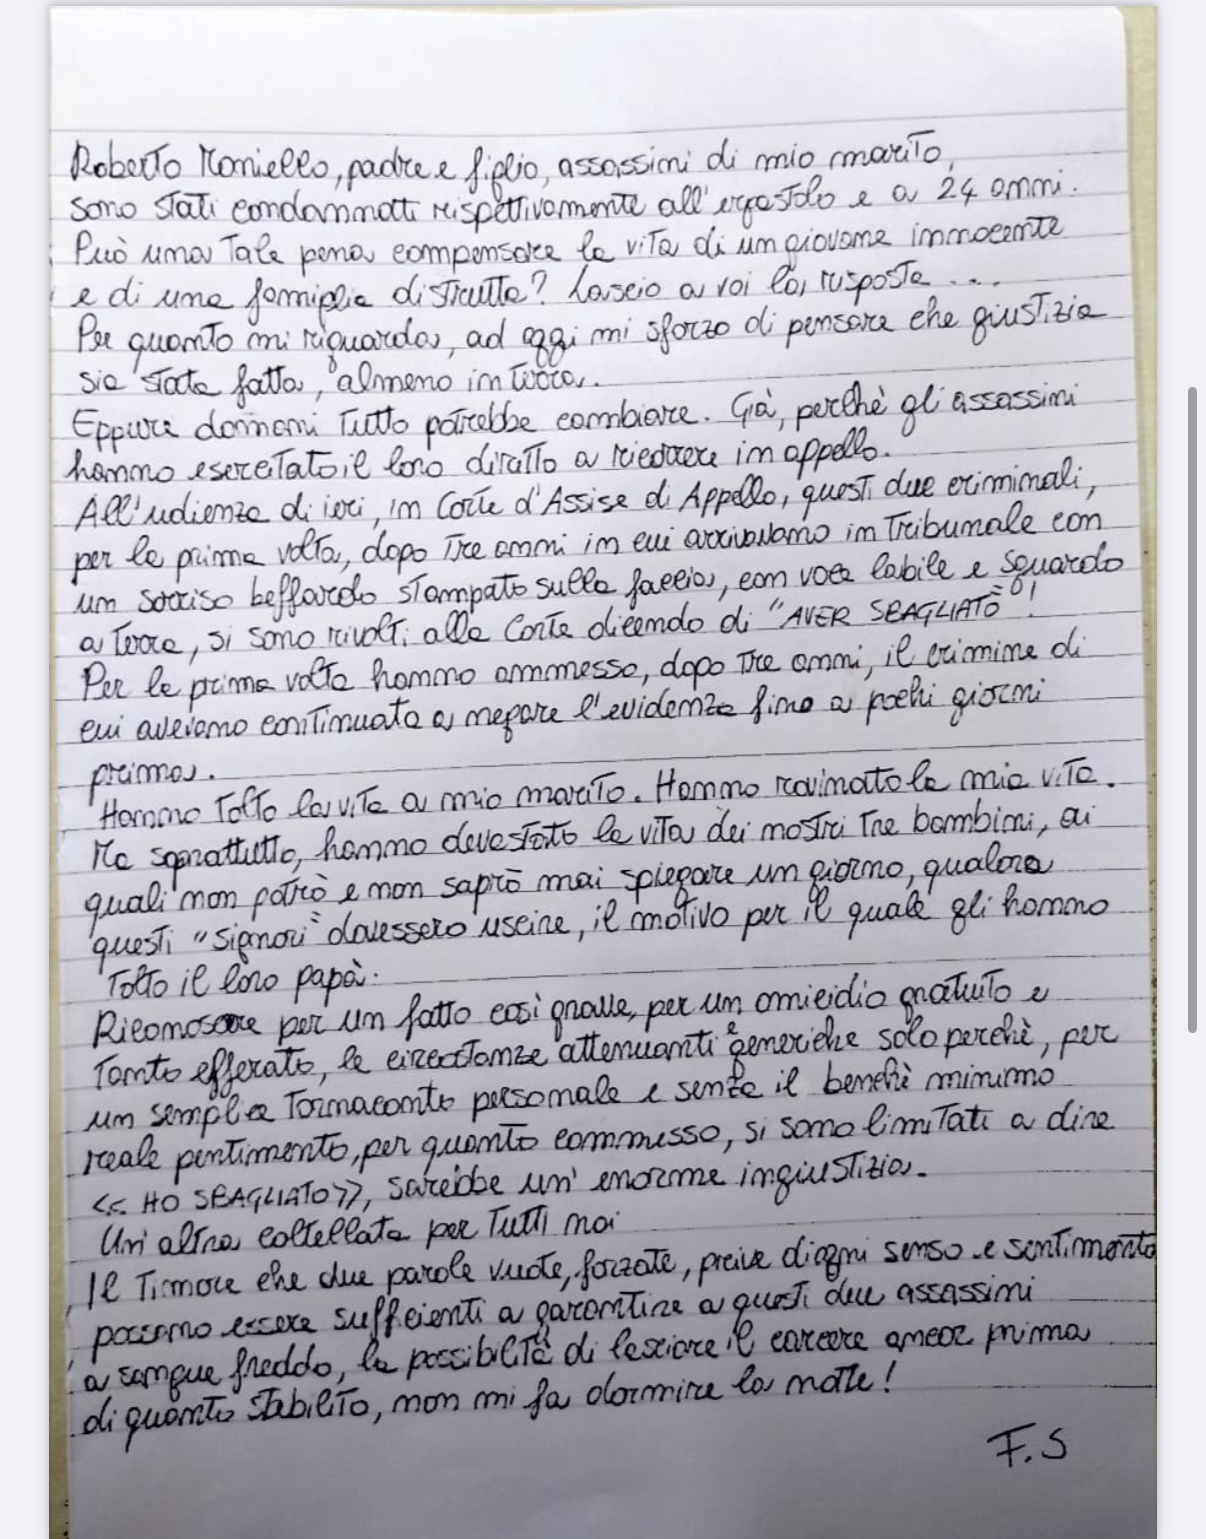 Roberto Maniello, padre e figlio, assassini di mio marito,
sono stati condannati rispettivamente all'ergastolo e a 24 anni.
Può una tale pena compensare la vita di un giovane innocente
e di una famiglia distrutta? Lascio a voi la risposta ....
Per quanto mi riguarda, ad oggi mi sforzo di pensare che giustizia
sia stata fatta, almeno in terra.
Eppure domani tutto potrebbe cambiare. Già, perchè gli assassini
hanno esercitato il loro diritto a ricorrere in appello.
All'udienza di ieri, in Corte d'Assise di Appello, questi due criminali,
per la prima volta, dopo tre anni in cui arrivavano in Tribunale con
un sorriso beffardo stampato sulla faccia, con voce labile e sguardo
a terra, si sono rivolti alla Corte dicendo di "AVER SBAGLIATO"!
Per la prima volta hanno ammesso, dopo tre anni, il crimine di
cui avevano continuato a negare l'evidenza fino a pochi giorni
prima.
Hanno tolto la vita a mio marito. Hanno rovinato la mia vita.
Ma soprattutto, hanno devastato la vita dei nostri tre bambini, ai
quali non potrò e non saprò mai spiegare un giorno, qualora
questi "signori" dovessero uscire, il motivo per il quale gli hanno
tolto il loro papà.
Riconoscere per un fatto così grave, per un omicidio gratuito e
tanto efferato, le circostanze attenuanti generiche solo perchè, per
un semplice tornaconto personale e senza il benchè minimo
reale pentimento, per quanto commesso, si sono limitati a dire
<< HO SBAGLIATO>>, sarebbe un' enorme ingiustizia.
Un'altra coltellata per tutti noi
Il timore che due parole vuote, forzate, prive di ogni senso e sentimento
possano essere sufficienti a garantire a questi due assassini
a sangue freddo, la possibilità di lasciare il carcere ancor prima
di quanto stabilito, non mi fa dormire la notte!
F.S